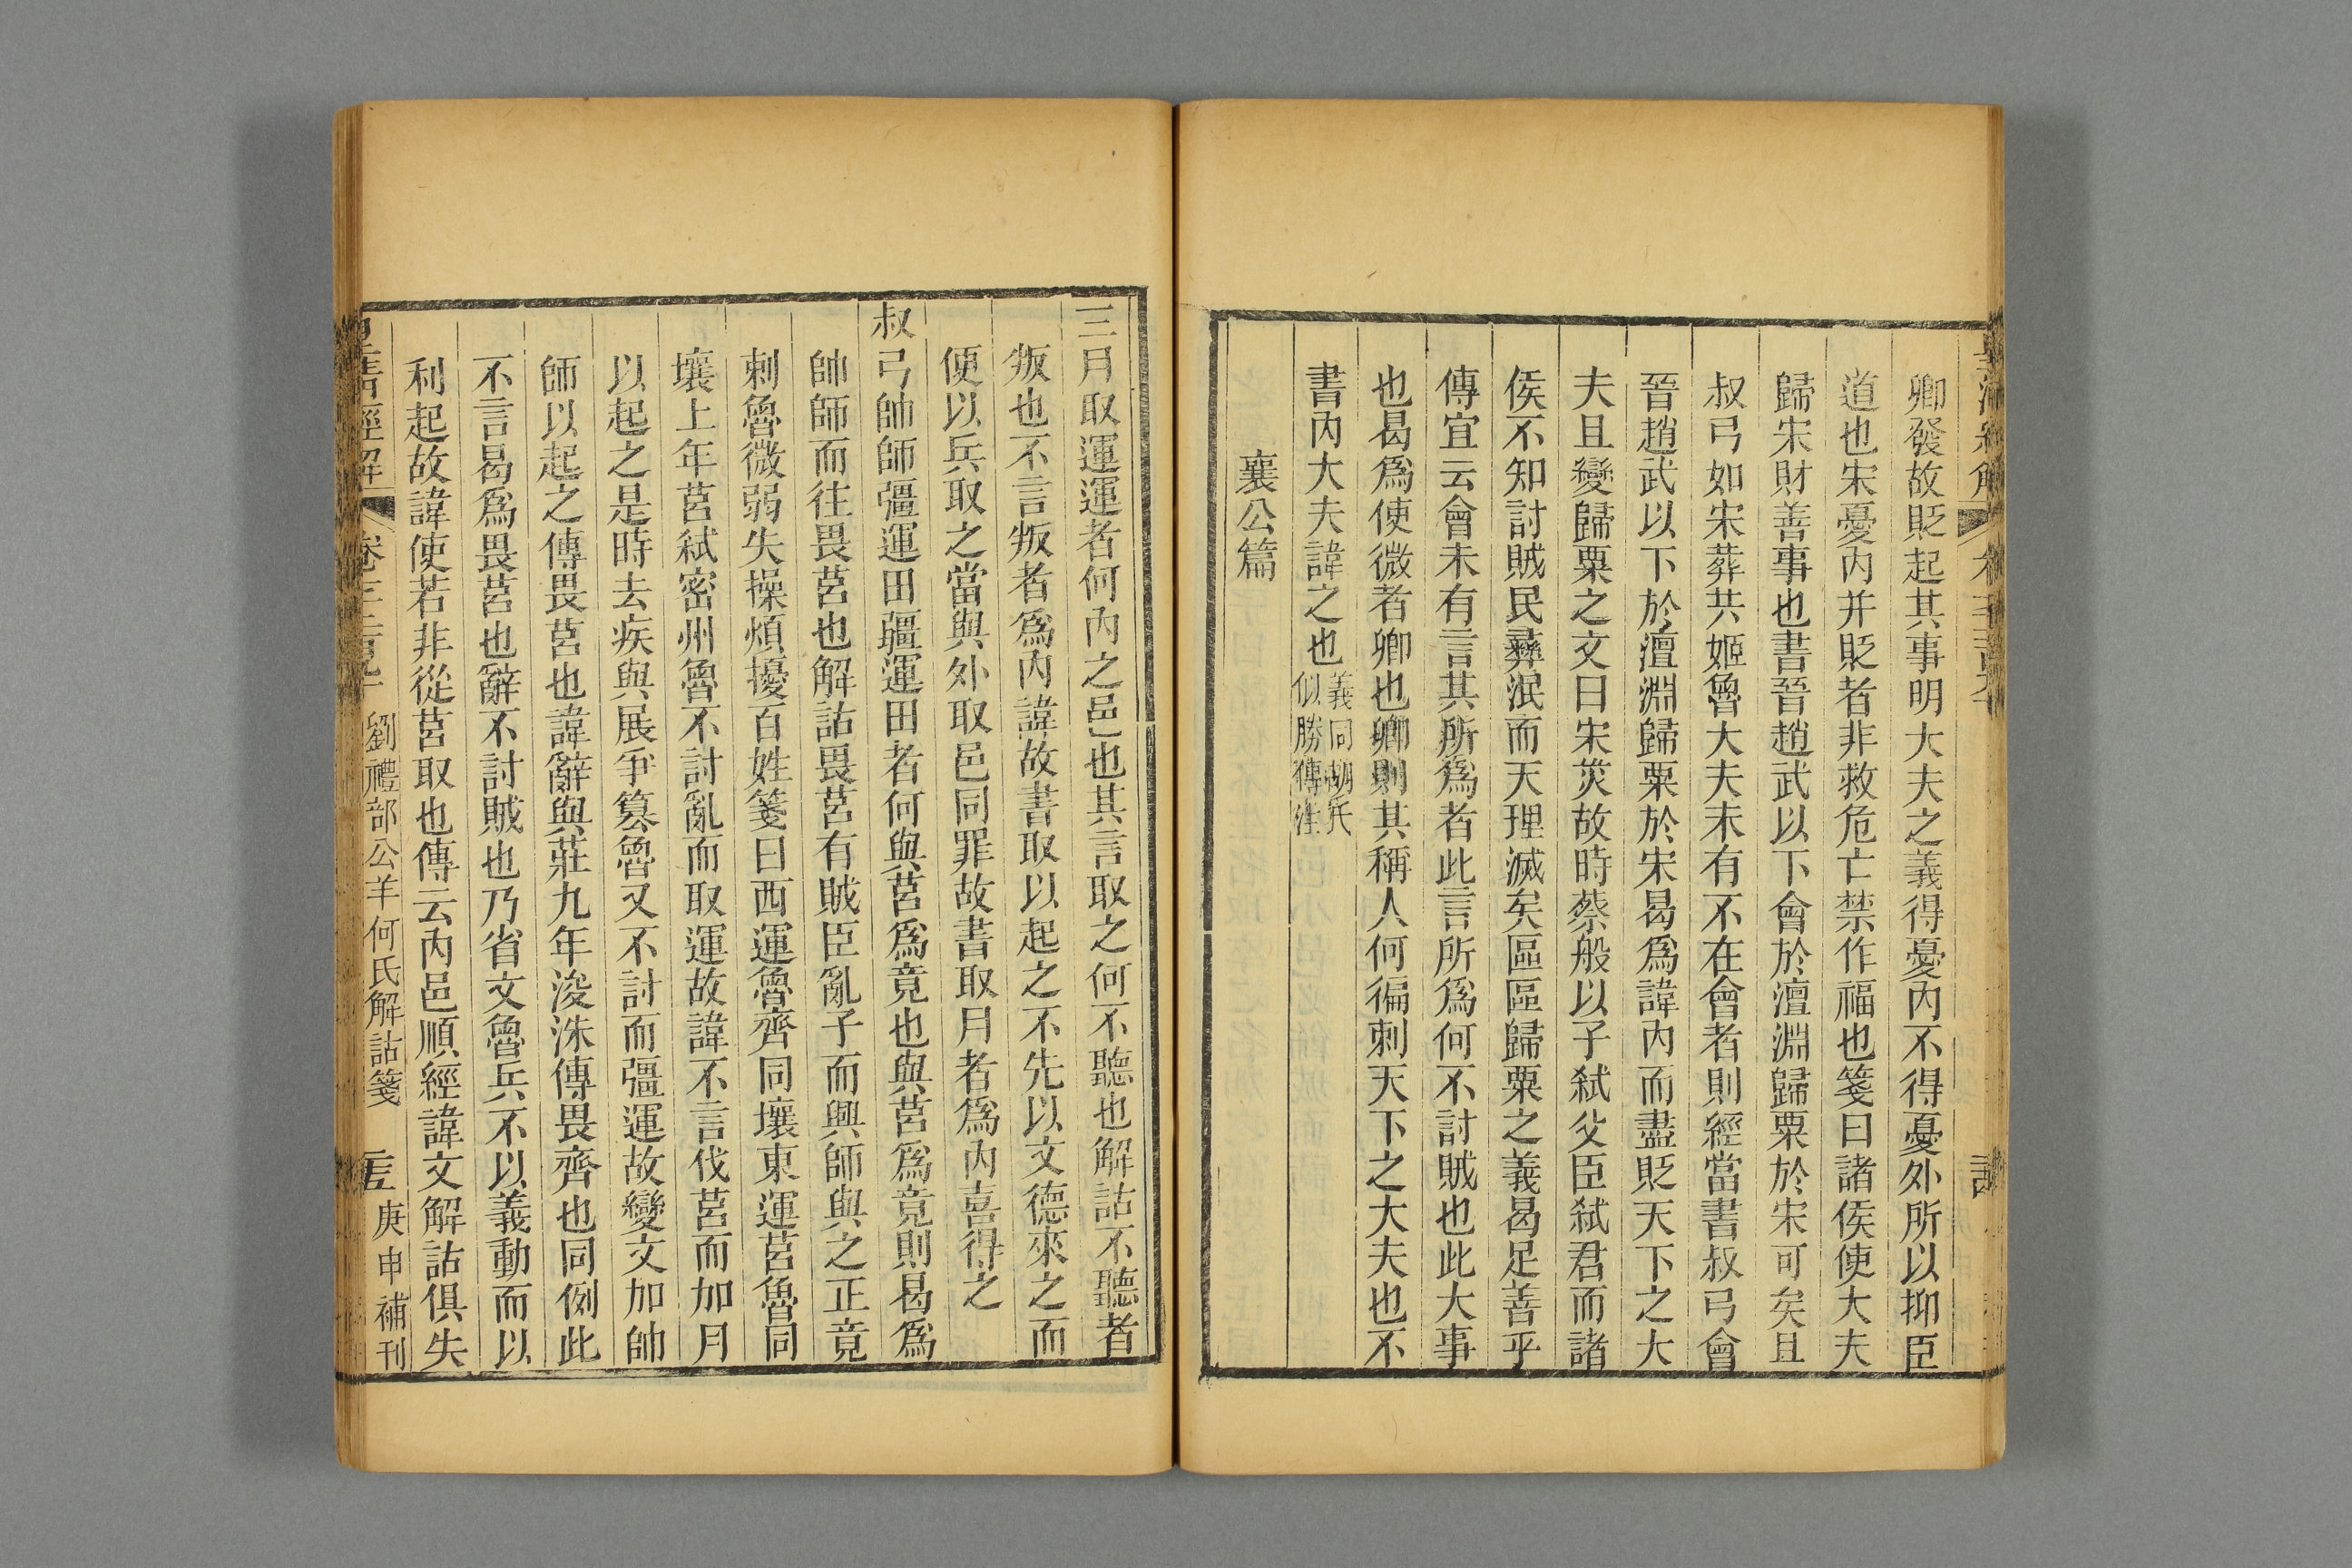 卿發故貶起其事明大夫之義得憂內不得憂外所以抑臣
道也宋憂內并貶者非救危亡禁作福也箋曰諸侯使大夫
歸宋財善事也書晉趙武以下會於澶淵歸粟於宋可矣且
叔弓如宋葬共姬魯大夫未有不在會者則經當書叔弓會
晉趙武以下於澶淵歸粟於宋曷爲諱內而盡貶天下之大
夫且變歸粟之文曰宋災故時蔡般以子弒父臣弒君而諸
侯不知討賊民彝泯而天理滅矣區區歸粟之義曷足善乎
傳宜云會未有言其所爲者此言所爲何不討賊也此大事
也曷爲使微者卿也卿則其稱人何徧刺天下之大夫也不
書內大夫諱之也義同胡氏
似勝傳注
襄公篇
三月取運運者何內之邑也其言取之何不聽也解詁不聽者
叛也不言叛者爲內諱故書取以起之不先以文德來之而
便以兵取之當與外取邑同罪故書取月者爲內喜得之
叔弓帥師彊運田疆運田者何與莒爲竟也與莒爲竟則曷爲
帥師而往畏莒也解詁畏莒有賊臣亂子而興師與之正竟
刺魯微弱失操煩擾百姓箋曰西運魯齊同壤東運莒魯同
壤上年莒弒密州魯不討亂而取運故諱不言伐莒而加月
以起之是時去疾與展爭篡魯又不討而彊運故變文加帥
師以起之傳畏莒也諱辭與莊九年浚洙傳畏齊也同例此
不言曷爲畏莒也辭不討賊也乃省文魯兵不以義動而以
利起故諱使若非從莒取也傳云內邑順經諱文解詁俱失
劉禮部公羊何氏解詁箋
庚申補刊